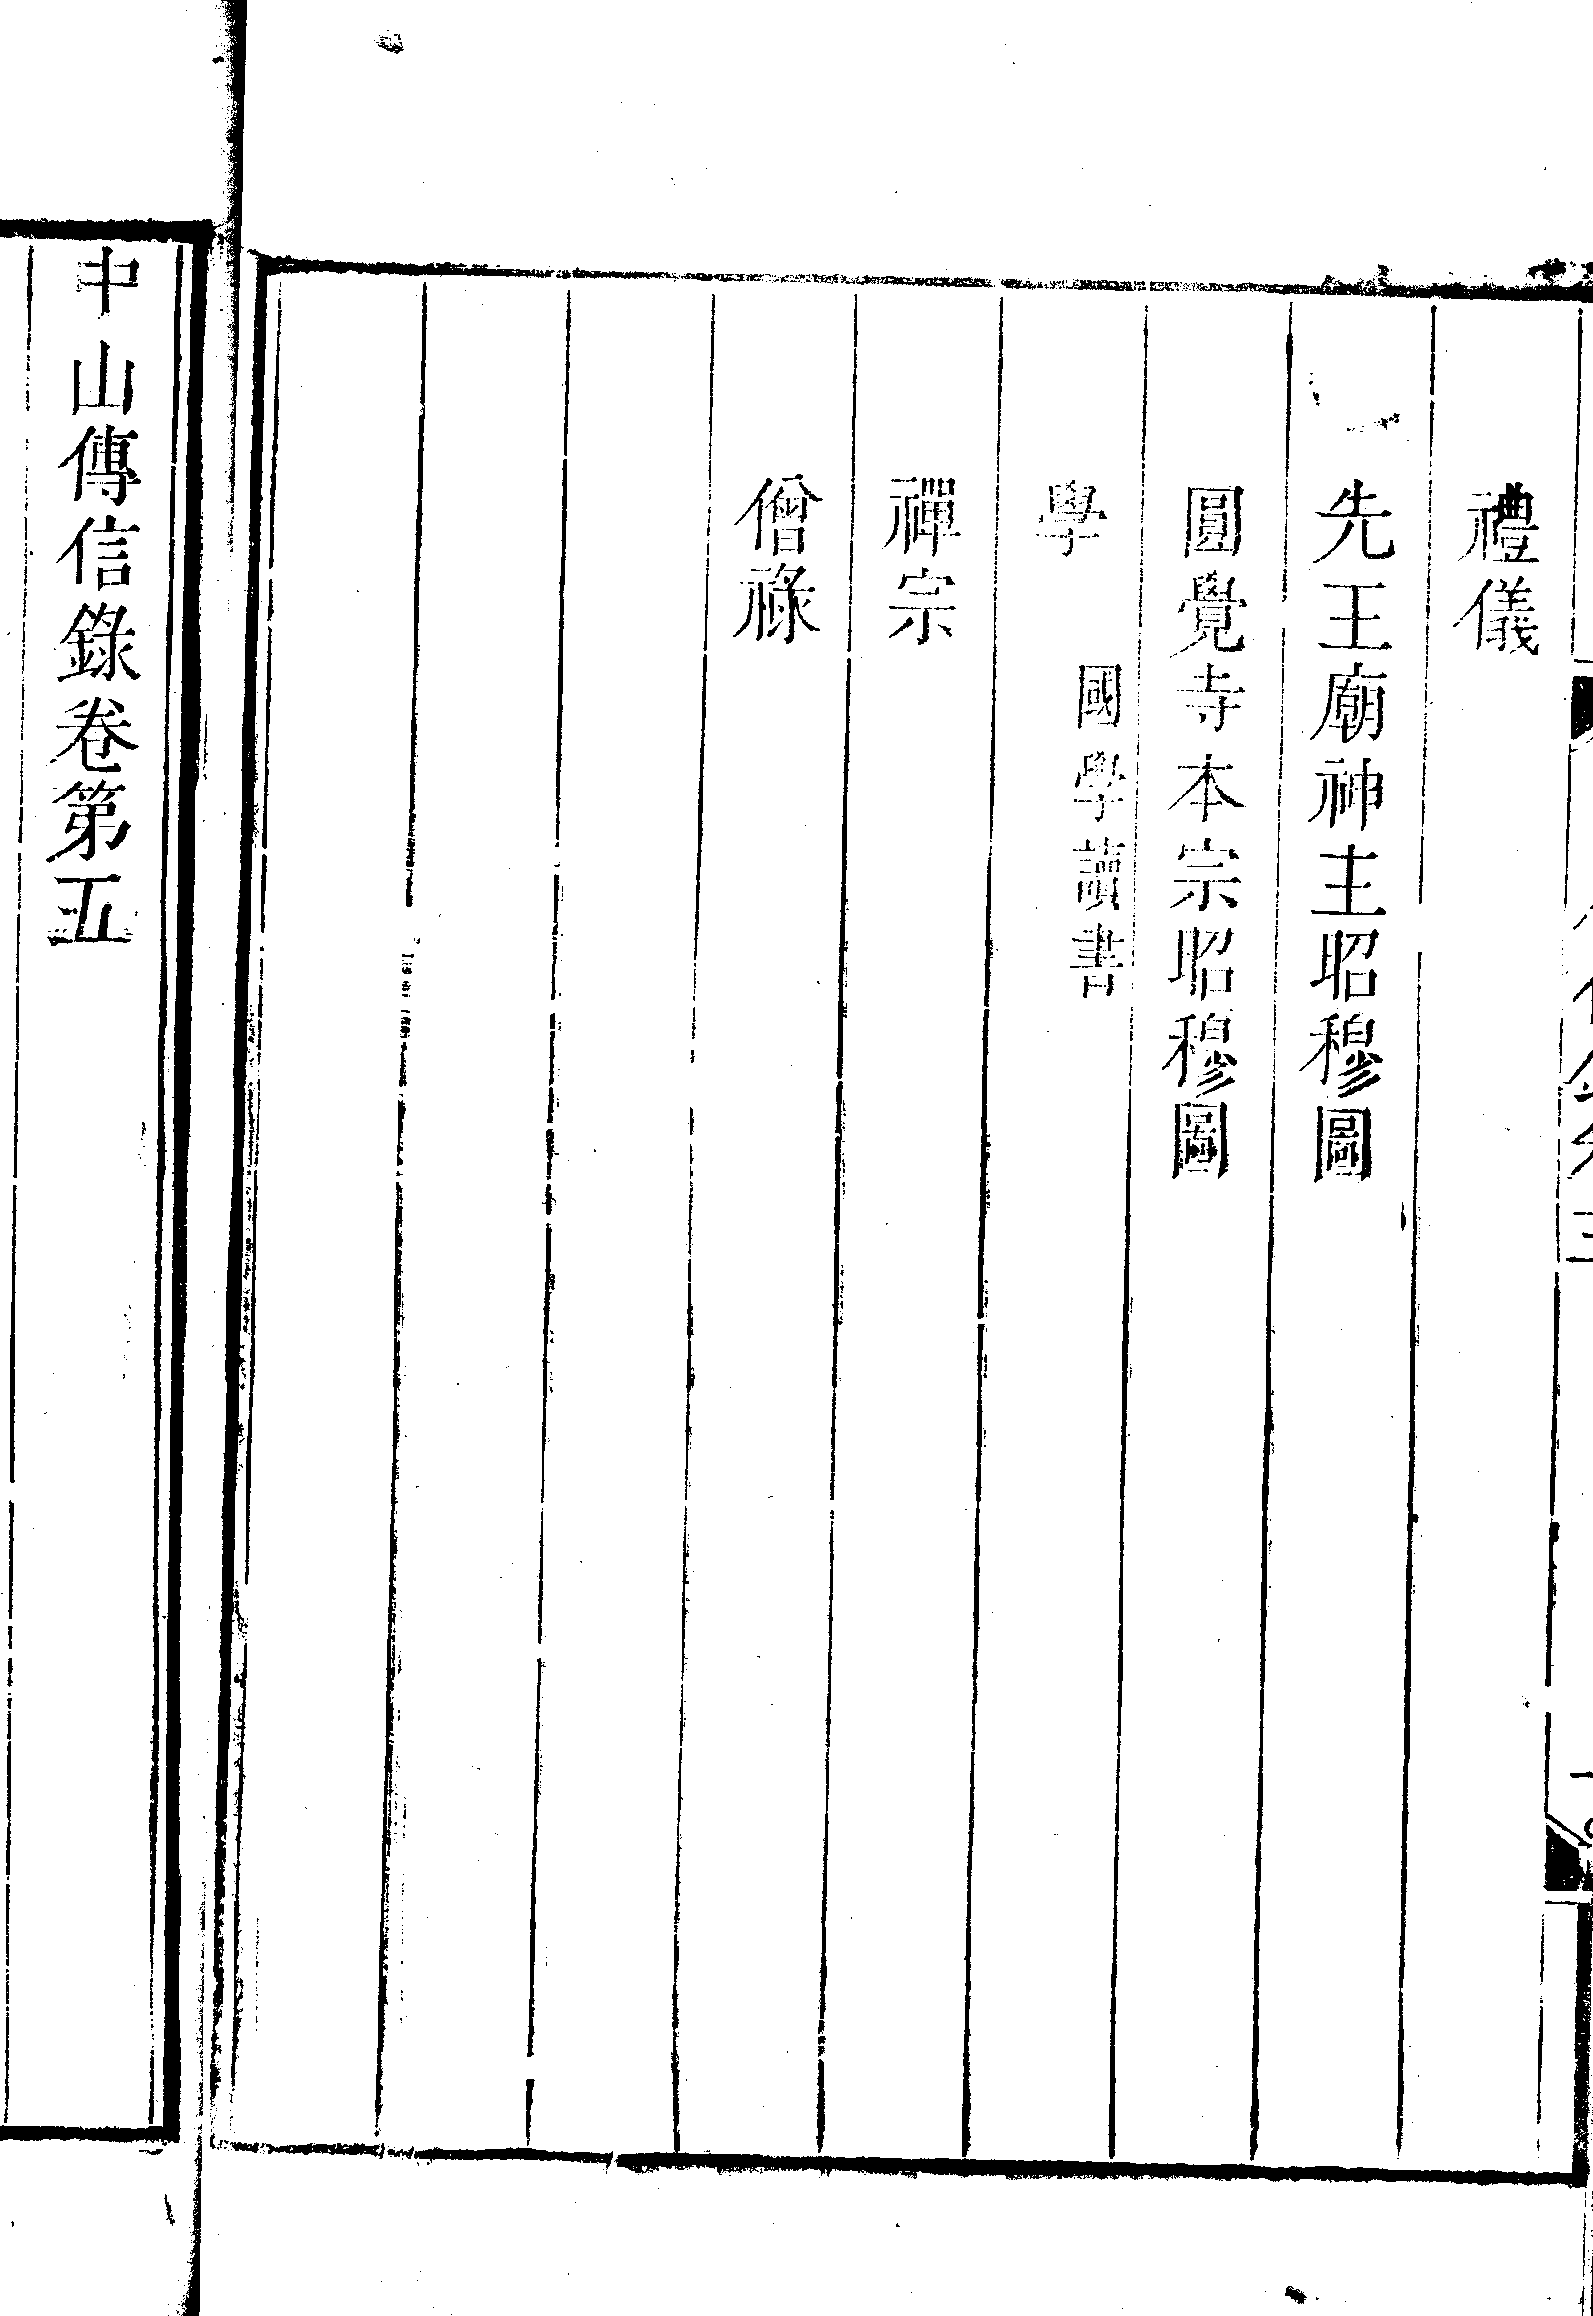 禮儀
先王廟神主昭穆圖
圓覺寺本宗昭穆圖
學
國學讀書
禪宗
僧祿
中山傳信錄卷第五